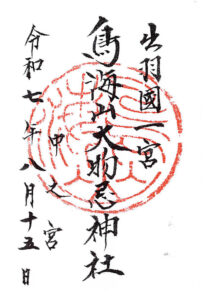 出羽國一宮
鳥海山大物忌神社
中之宮
令和七年八月十五日